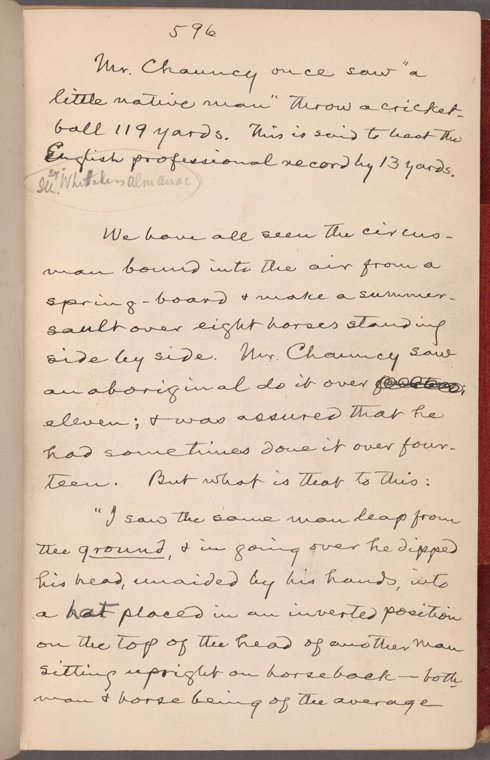 596
Mr. Chauncy once saw "a
little native man" throw a cricket-
ball 119 yards. This is said to beat the
English professional record by 13 yards.
Whittakers almanac
We have all seen the circus-
man bound into the air from a
spring-board & make a summer-
sault over eight horses standing
side by side. Mr. Chauncy saw
an aboriginal do it over
eleven; & was assured that he
had sometimes done it over four-
teen. But what is that to this:
"I saw the same man leap from
the ground, & in going over he dipped
his head, unaided by his hands, into
a hat placed in an inverted position
on the top of the head of another man
sitting upright on horseback — both
man & horse being of the average